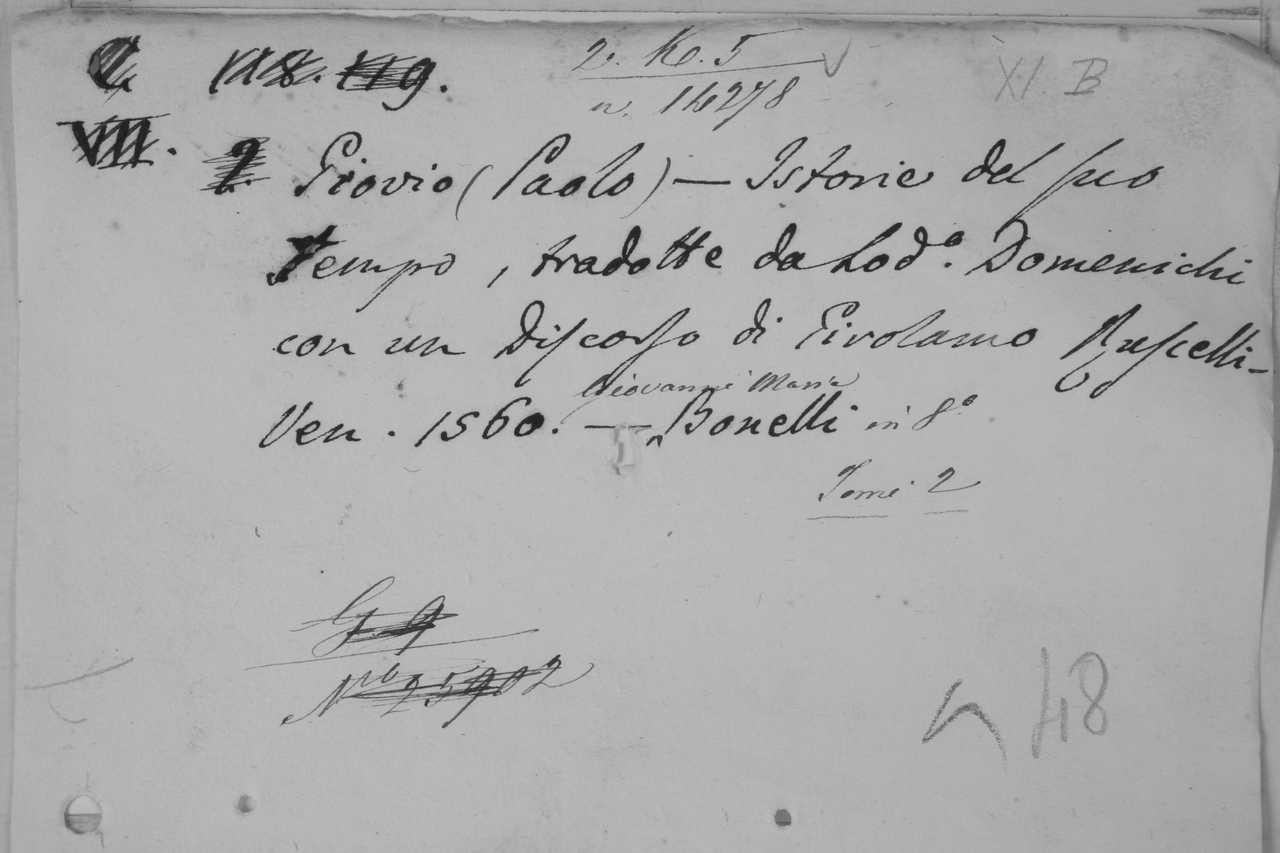 C 118. 119.
2. K. 5
n. 14278
XI. B
VII.
2. Giovio (Paolo) — Istorie del suo
tempo, tradotte da Lod.º Domenichi
con un Discorso di Girolamo Ruscelli -
Giovanni Maria
Ven. 1560. — Bonelli in 8º
Tomi 2
G. 9
Nro 25902
48